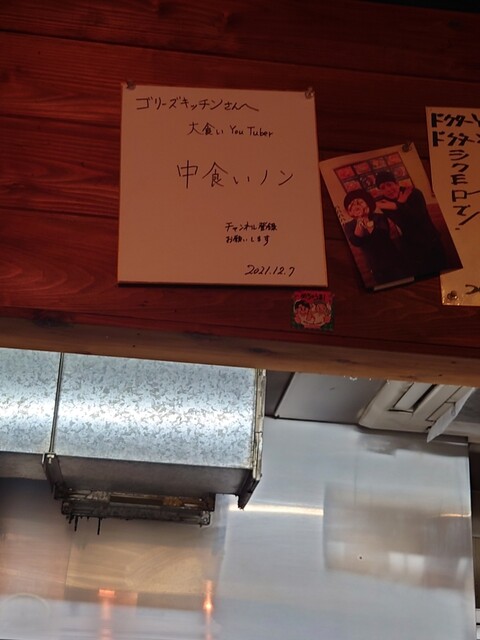 ゴリーズキッチンさんへ
大食い YouTuber
中食いノン
チャンネル登録
お願いします
2021.12.7
ドクターY
ドクター
シクヨロで